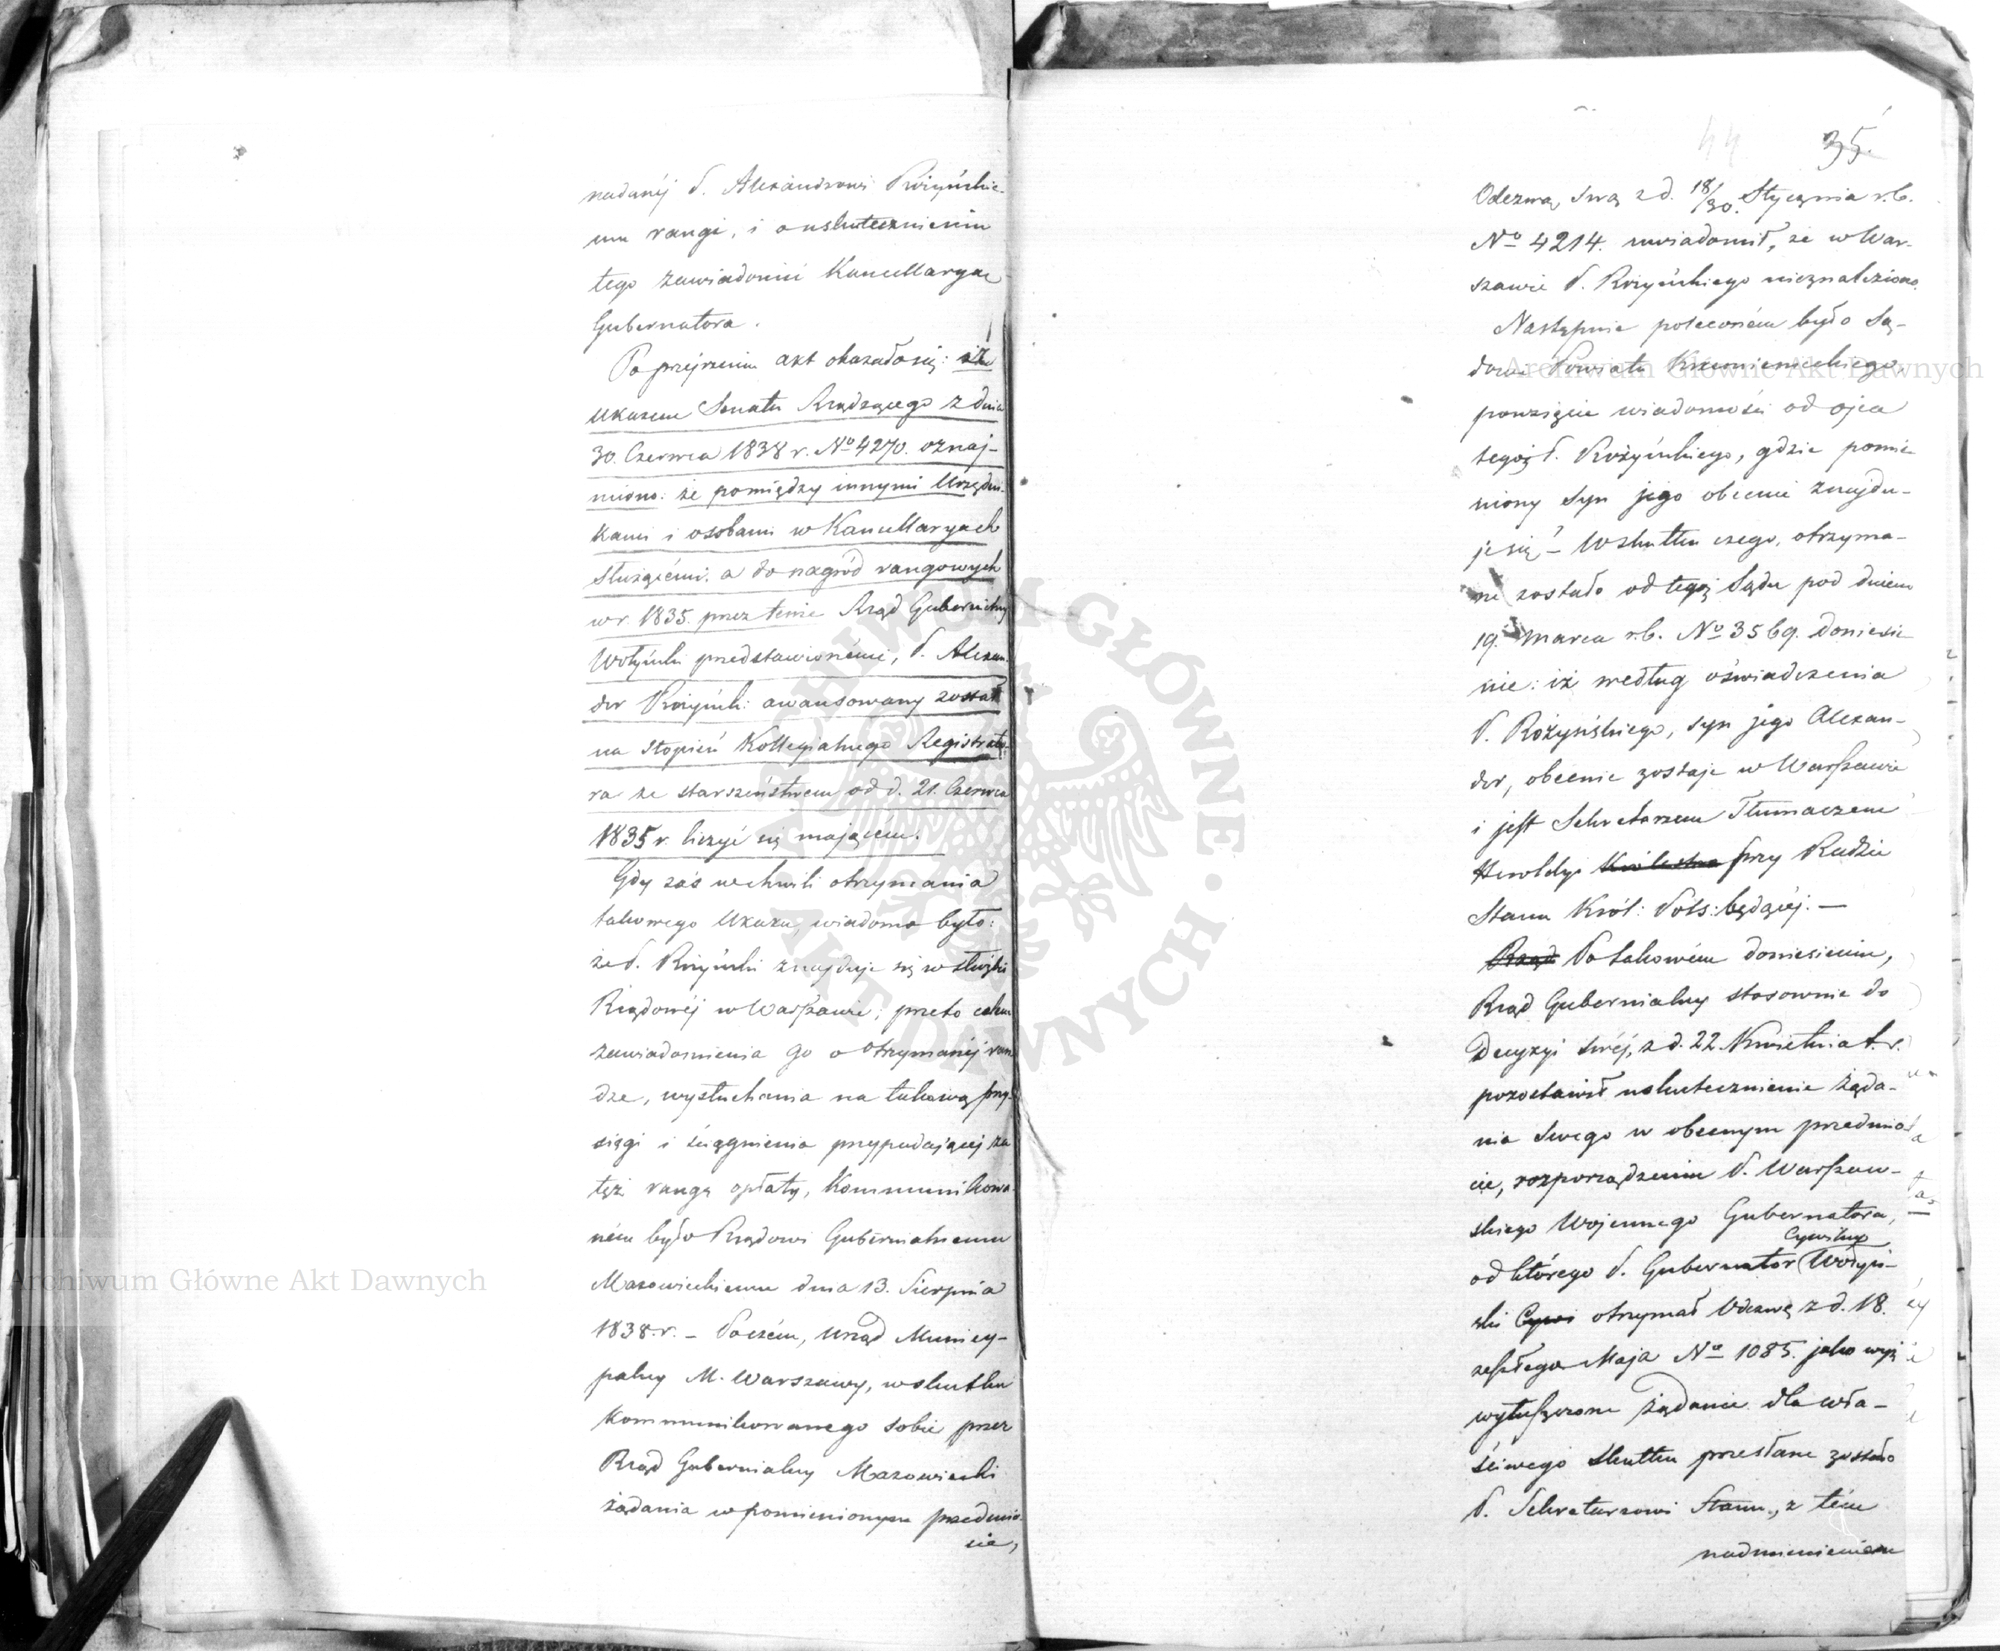 nadanéj P. Alexandrowi Różyńskie-
mu rangi, i o uskutecznieniu
tego zawiadomić Kancellaryą
Gubernatora.
Po przejrzeniu akt okazało się: iż
Ukazem Senatu Rządzącego z dnia
30. Czerwca 1838 r. No 4270. oznaj-
miono: że pomiędzy innymi Urzędni-
kami i osobami w Kancellaryach
służącémi, a do nagród rangowych
w r. 1835. przez tenże Rząd Gubernialny
Wołyński przedstawionémi, P. Alexan-
der Różyński: awansowany został
na stopień Kollegialnego Registrato-
ra ze starszeństwem od d. 21. Czerwca
1835 r. liczyć się mającém.
Gdy zaś w chwili otrzymania
takowego Ukazu, wiadomo było:
że P. Różyński znajduje się w służbie
Rządowéj w Warszawie; przeto celem
zawiadomienia go o otrzymanéj ran-
dze, wysłuchania na takową przy-
sięgi i ściągnienia przypadającej za
tęż rangę opłaty, Kommunikowa-
ném było Rządowi Gubernialnemu
Mazowieckiemu dnia 13. Sierpnia
1838. r. – Poczém, Urząd Municy-
palny M. Warszawy, w skutku
Kommunikowanego sobie przez
Rząd Gubernialny Mazowiecki
żądania w pomienionym przedmio-
cie,
44
35
Odezwą swą z d. 18/30. Stycznia r. b.
No 4214. uwiadomił, że w War-
szawie P. Różyńskiego nieznaleziono.
Następnie poleconém było Są-
dowi Powiatu Krzemienieckiego,
powzięcie wiadomości od ojca
tegoż P. Różyńskiego, gdzie pomie-
niony syn jego obecnie znajdu-
je się? – W skutku czego, otrzyma-
ne zostało od tegoż Sądu pod dniem
19. Marca r. b. No 3569. doniesie-
nie: iż według oświadczenia
P. Różyńskiego, syn jego Alexan-
der, obecnie zostaje w Warszawie
i jest Sekretarzem Tłumaczem
Heroldyi Królestwa przy Radzie
Stanu Król: Pols: będącéj. –
Rząd Po takowém doniesieniu,
Rząd Gubernialny stosownie do
Decyzyi swéj, z d. 22. Kwietnia t. r.
pozostawił uskutecznienie żąda-
nia swego w obecnym przedmio-
cie, rozporządzeniu P. Warszaw-
skiego Wojennego Gubernatora,
od którego P. Gubernator Cywilny Wołyń-
ski Cywi otrzymał Odezwę z d. 18.
zeszłego Maja No 1085. jako wyż
wyłuszczone żądanie dla wła-
ściwego skutku przesłane zostało
P. Sekretarzowi Stanu, z tém
nadmienieniem
Archiwum Główne Akt Dawnych
Archiwum Główne Akt Dawnych
ARCHIWUM GŁÓWNE AKT DAWNYCH